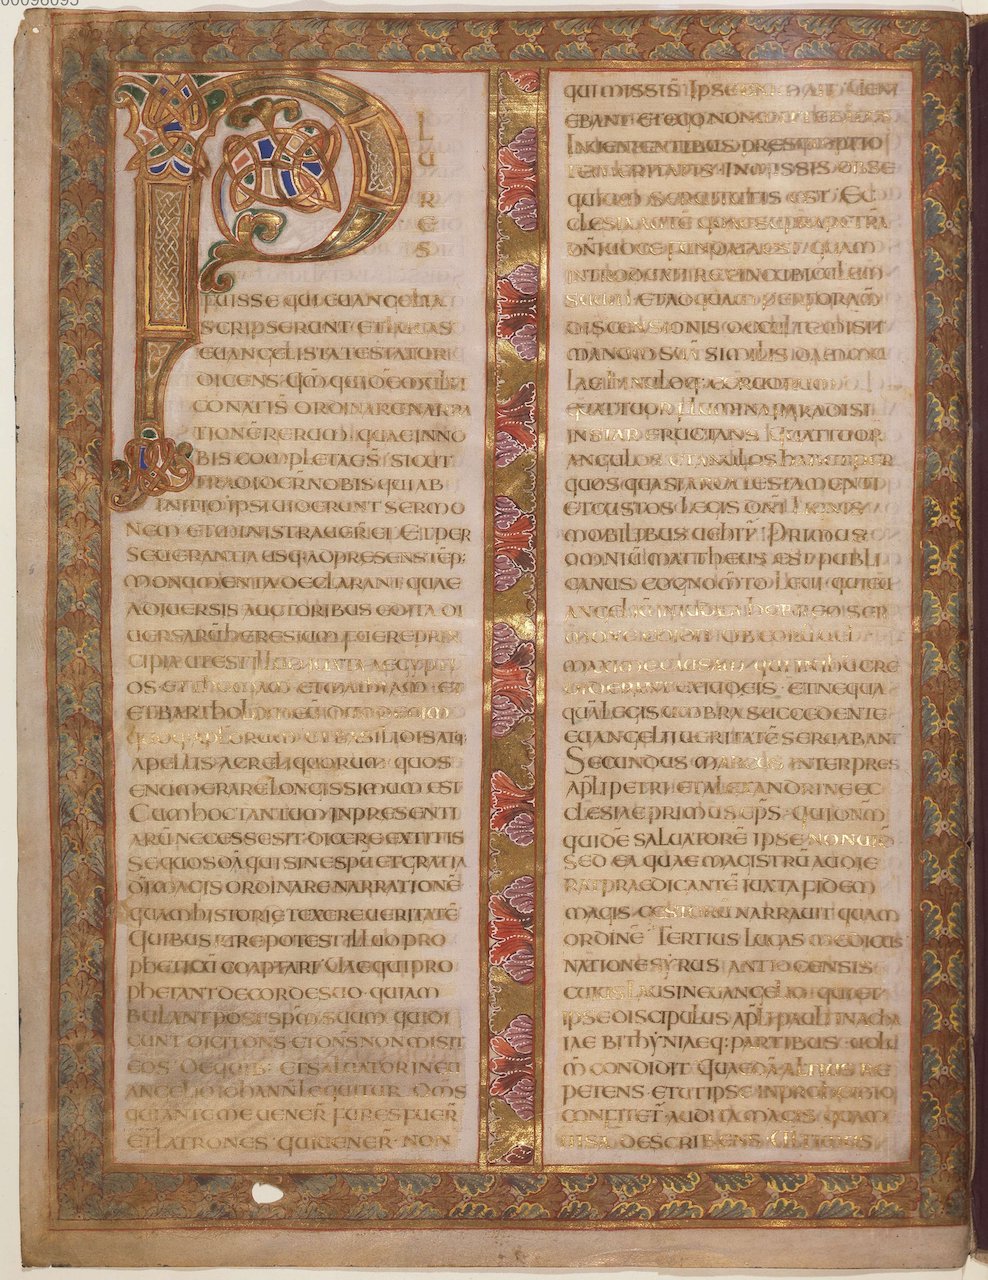 00096095
PLURES
FUISSE QUI EUANGELIA
SCRIPSERUNT ET LUCAS
EUANGELISTA TESTATUR
DICENS QM̄ QUIDĒ MULTI
CONATI S̄ ORDINARE NARRA
TIONĒ RERUM QUAE INNO
BIS COMPLETAE S̄ SICUT
TRADIDER̄ NOBIS QUI AB
INITIO IPSI UIDERUNT SERMO
NEM ET MINISTRAUER̄ EI ET PER
SEUERANTIA USQ: AD PRESENS TEP̄:
MONUMENTA DECLARANT QUAE
A DIUERSIS AUCTORIBUS EDITA DI
UERSARŪ HERESIUM FUERE PRIN
CIPIA UT EST ILLUD IUXTA AEGYPTI
OS ET THOMAM ET MATHIAM ET
ET BARTHOLOMEŪ
APOSTOLORUM ET BASILIDIS ATQ:
APELLIS AC RELIQUORUM QUOS
ENUMERARE LONGISSIMUM EST
CUM HOC TANTUM IN PRESENTI
ARŪ NECESSE SIT DICERE EXTITIS
SE QUOSDĀ QUI SINE SPŪ ET GRATIA
DĪ MAGIS ORDINARE NARRATIONĒ
QUAM HISTORIE TEXERE UERITATĒ
QUIBUS IURE POTEST ILLUD PRO
PHETICŪ COAPTARI UAE QUI PRO
PHETANT DE CORDE SUO QUI AM
BULANT POST SPM̄ SUUM QUI DI
CUNT DICIT DNS̄ ET DNS̄ NON MISIT
EOS DE QUIB: ET SALUATOR IN EU
ANGELIO IOHANNI LOQUITUR OMS̄
QUI ANTE ME UENER̄ FURES FUER̄
ET LATRONES QUI UENER̄ NON
QUI MISSI S̄ IPSE ENIM AIT UENI
EBANT ET EGO NON MITTEBAM
IN UENIENTIBUS PRESUMPTIO
TEMERITATIS IN MISSIS OBSE
QUIUM SERUITUTIS EST EC
CLESIA AUTĒ QUAE SUPRA PETRĀ
DN̄I UOCE FUNDATA EST QUAM
INTRODUXIT REX IN CUBICULUM
SUUM ET AD QUAM PER FORAM̄
DISCENSIONIS OCCULTE MISIT
MANUM SUĀ SIMILIS DAMMU
LAE HINULOQ: CERUORUM
QUATTUOR FLUMINA PARADISI
INSTAR ERUCTANS QUATTUOR
ANGULOS ET ANULOS HABET PER
QUOS QUASI ARCA TESTAMENTI
ET CUSTOS LEGIS DN̄I LIGNIS
MOBILIBUS UEHIT̄ PRIMUS
OMNIŪ MATTHEUS EST PUBLI
CANUS COGNOM̄TO LEUI QUI EU
ANGELIŪ IN IUDEA HEBREO SER
MONE EDIDIT OB EORŪ UEL
MAXIME CAUSAM QUI IN IHU CRE
DIDERANT EX IUDEIS ET NEQUA
QUĀ LEGIS UMBRA SUCCEDENTE
EUANGELII UERITATĒ SERUABANT
SECUNDUS MARCUS INTERPRES
APL̄I PETRI ET ALEXANDRINE EC
CLESIAE PRIMUS EPS̄ QUI DNM̄
QUIDĒ SALUATORĒ IPSE NON UIDIT
SED EA QUAE MAGISTRŪ AUDIE
RAT PRAEDICANTĒ IUXTA FIDEM
MAGIS GESTORŪ NARRAUIT QUAM
ORDINĒ TERTIUS LUCAS MEDICUS
NATIONE SYRUS ANTIOCENSIS
CUIUS LAUS IN EUANGELIO QUI ET
IPSE DISCIPULUS APL̄I PAULI IN ACHA
IAE BITHYNIAEQ: PARTIBUS UOLU
M̄ CONDIDIT QUAEDĀ ALTIUS RE
PETENS ET UT IPSE IN PROHEMIO
CONFITET̄ AUDITA MAGIS QUAM
UISA DESCRIBENS ULTIMUS